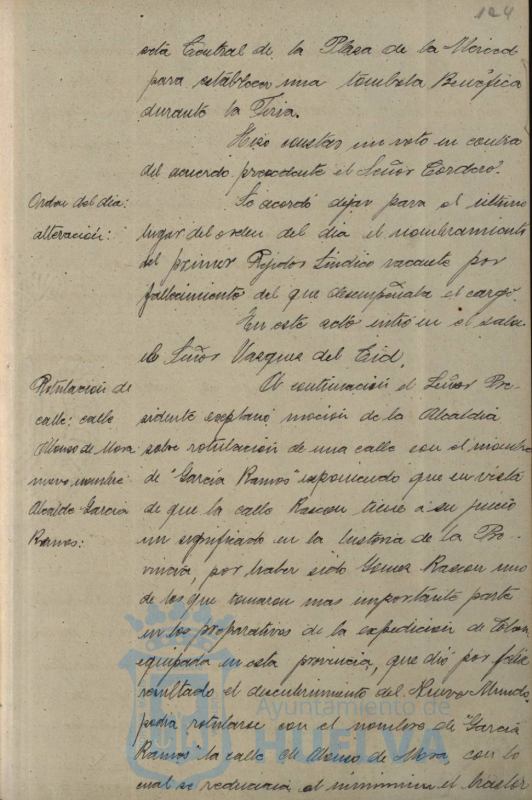 124
seta Central de la Plaza de la Merced
para establecer una tombola Benéfica
durante la Feria.
Hizo constar un voto en contra
del acuerdo precedente el Señor Cordero.
Orden del dia:
alteración:
Se acordó dejar para el ultimo
lugar del orden del dia el nombramiento
del primer Rejidor Sindico vacante por
fallecimiento del que desempeñaba el cargo.
En este acto entró en el salon
el Señor Vazquez del Cid.
Rotulacion de
calle: calle
Alonso de Mora
nuevo nombre
Alcalde Garcia
Ramos:
A continuacion el Señor Pre-
sidente explanó moción de la Alcaldia
sobre rotulación de una calle con el nombre
de "García Ramos" exponiendo que en vista
de que la calle Rascon tiene a su juicio
un significado en la historia de la Pro-
vincia, por haber sido Gomez Rascon uno
de los que tomaron mas importante parte
en los preparativos de la expedicion de Colon
equipada en esta provincia, que dió por feliz
resultado el descubrimiento del Nuevo Mundo,
podia rotularse con el nombre de "García
Ramos" la calle de Alonso de Mora, con lo
cual se reduciria al minimum el trastor
Ayuntamiento de
HUELVA